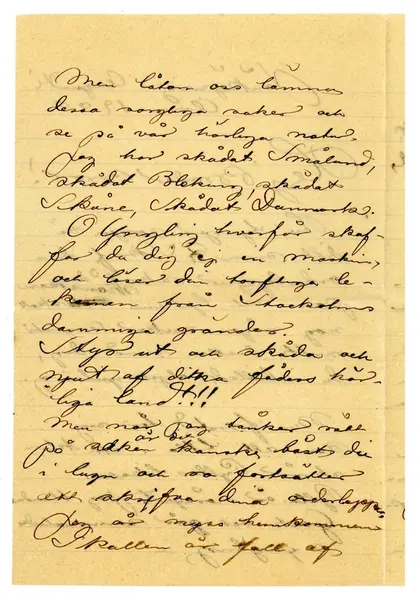 Men låtom oss lämna
dessa sorgliga saker och
se på vår härliga natur.
Jag har skådat Småland,
skådat Bleking, skådat
Skåne, skådat Danmark.
O Yngling hvarför skaf-
far du dig ej en maskin,
och lösen din torftiga le-
kamen från Stockholms
dammiga gränder.
Styr ut och skåda och
njut af ditka fäders här-
liga land!!!
Men när jag tänker rätt
på saken är det kanske bäst du
i lugn och ro fortsätter
att skrifva dina
Jag är nyss hemkommen
Skallen är full af